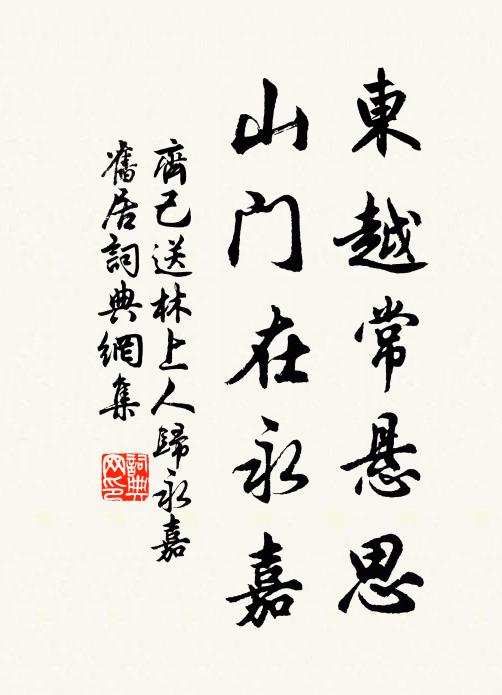 東越常懸思
山門在永嘉
齊己送林上人歸永嘉
舊居詞典網集
詞典網印